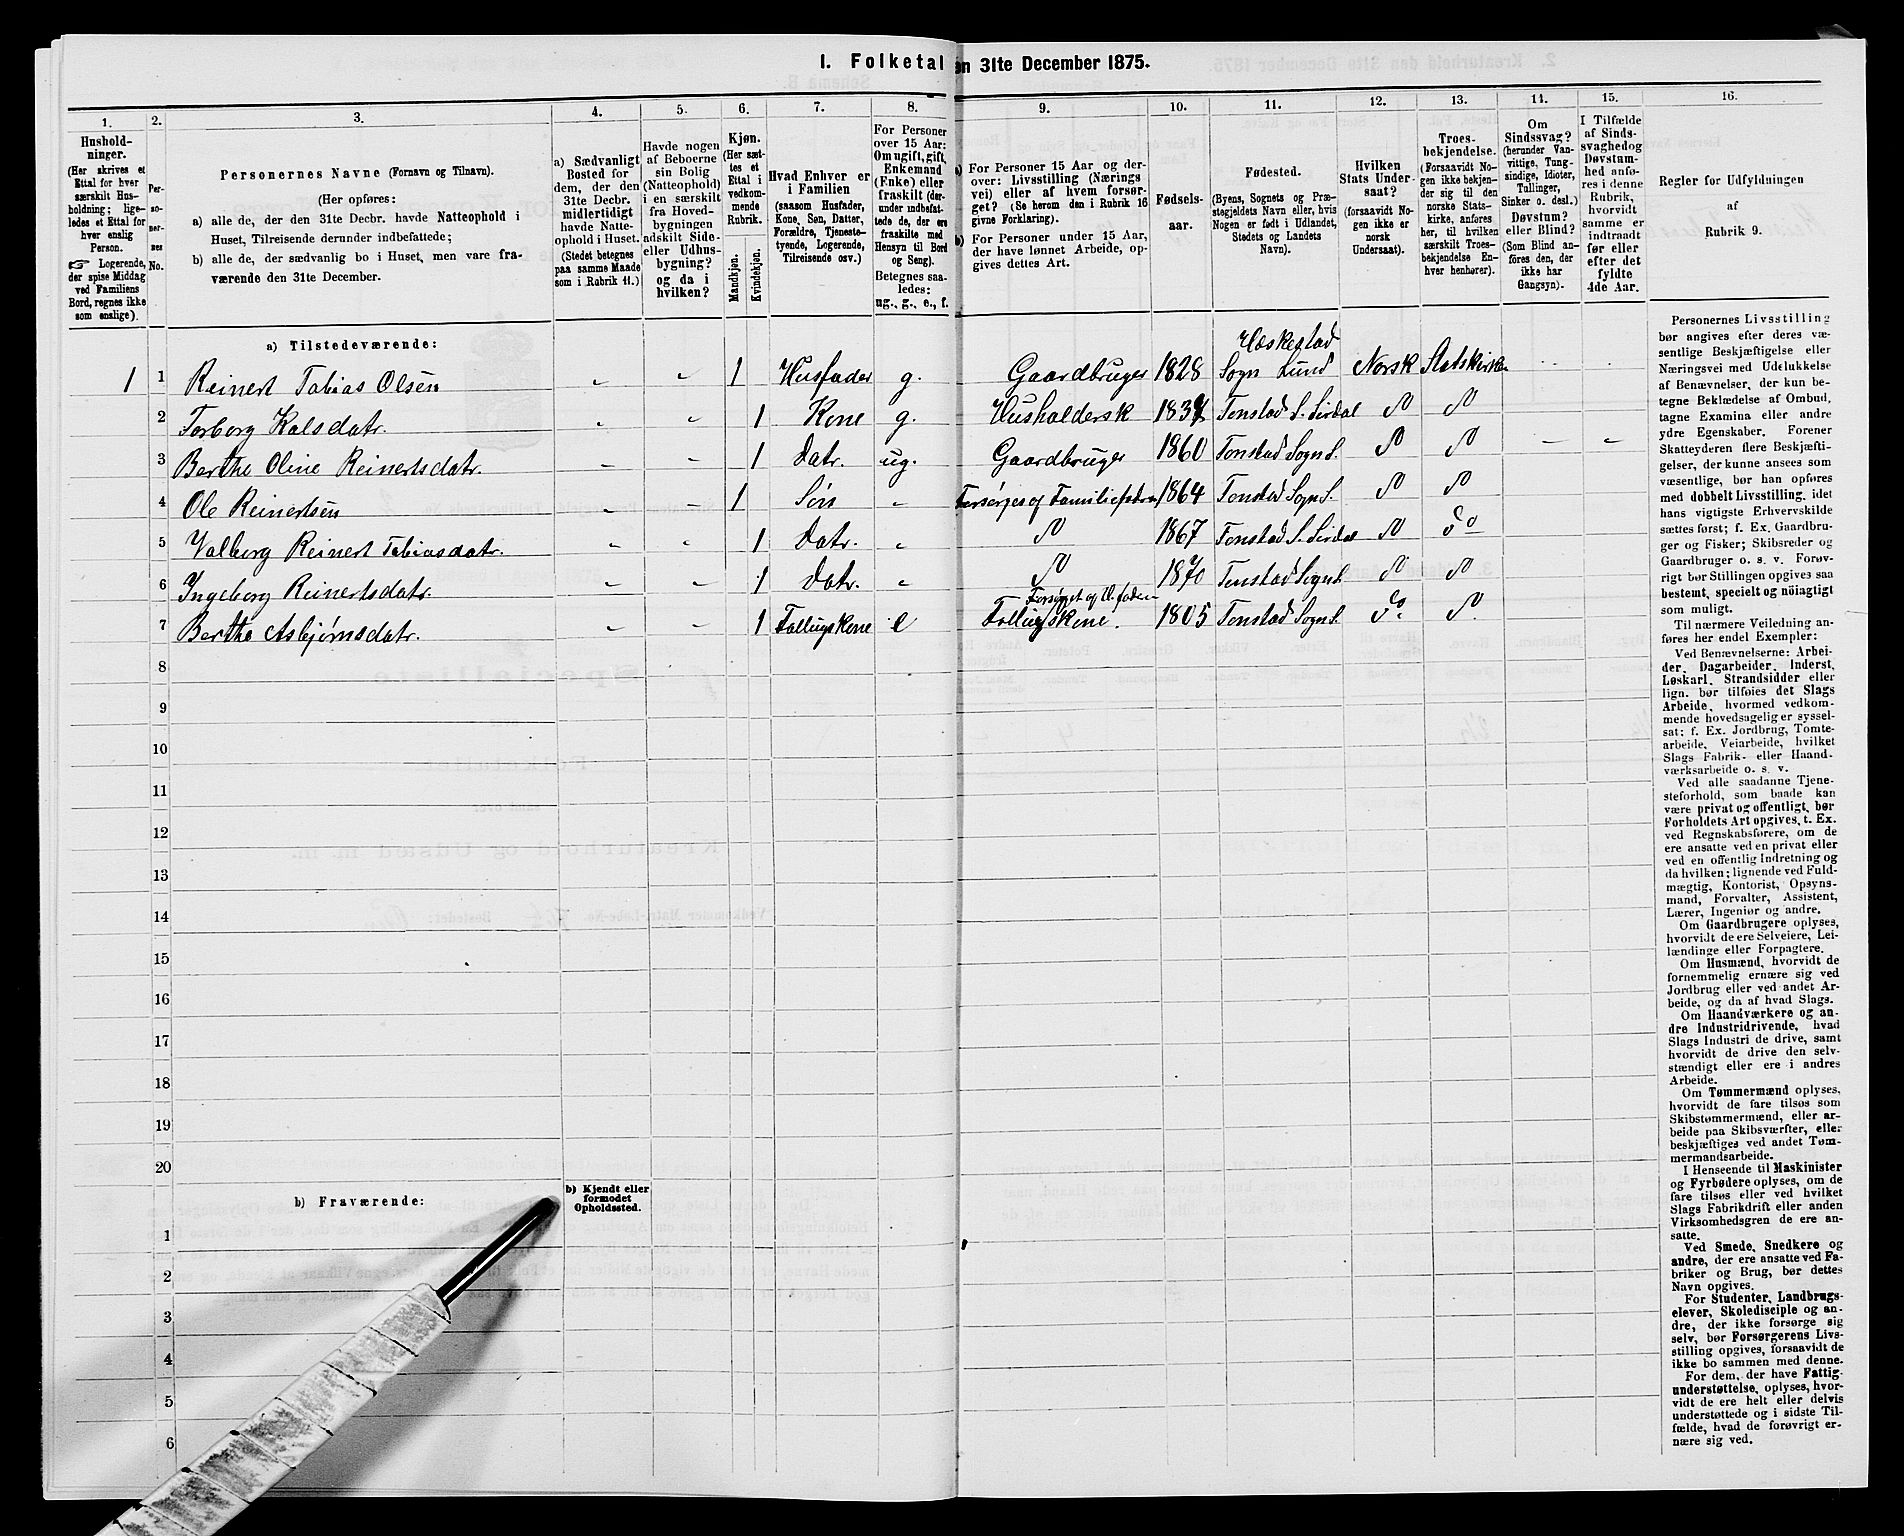 I. Folketal
en 31te December 1875.
1.
2.
3.
4.
5.
6.
7.
8.
9.
10.
11.
12.
13.
14.
15.
16.
Hushold-
ninger.
(Her skrives et
Ettal for hver
særskilt Hus-
holdning; lige-
ledes et Ettal for
hver enslig
Person.
☞ Logerende,
der spise Middag
ved Familiens
Bord, regnes ikke
som enslige).
Per-
so-
ner-
nes
No.
Personernes Navne (Fornavn og Tilnavn).
(Her opføres:
a) alle de, der den 31te Decbr. havde Natteophold i
Huset, Tilreisende derunder indbefattede;
b) alle de, der sædvanlig bo i Huset, men vare fra-
værende den 31te December.
a) Sædvanligt
Bosted for
dem, der den
31te Decbr.
midlertidigt
havde Natte-
ophold i Huset.
(Stedet betegnes
paa samme Maade
som i Rubrik 11.)
Havde nogen
af Beboerne
sin Bolig
(Natteophold)
i en særskilt
fra Hoved-
bygningen
adskilt Side-
eller Udhus-
bygning?
og da i
hvilken?
Kjøn.
(Her sæt-
tes et
Ettal i
vedkom-
mende
Rubrik.
Mandkjøn.
Kvindekjøn.
Hvad Enhver er
i Familien
(saasom Husfader,
Kone, Søn, Datter,
Forældre, Tjeneste-
tyende, Logerende,
Tilreisende osv.)
For Personer
over 15 Aar:
Om ugift, gift,
Enkemand
(Enke) eller
fraskilt (der-
under indbefat-
tede de, der ere
fraskilte med
Hensyn til Bord
og Seng).
Betegnes saa-
ledes:
ug., g., e., f.
a) For Personer 15 Aar og der-
over: Livsstilling (Nærings
vei) eller af hvem forsør-
get? (Se herom den i Rubrik 16
givne Forklaring).
b) For Personer under 15 Aar,
der have lønnet Arbeide, op-
gives dettes Art.
Fødsels-
aar.
Fødested.
(Byens, Sognets og Præ-
stegjeldets Navn eller, hvis
Nogen er født i Udlandet,
Stedets og Landets
Navn).
Hvilken
Stats Under-
saat?
(forsaavidt No-
gen ikke er
norsk
Undersaat).
Troes-
bekjendelse.
(Forsaavidt No-
gen ikke bekjen-
der sig til den
norske Stats-
kirke, anføres
her, til hvilken
særskilt Troes-
bekjendelse En-
hver henhører).
Om
Sindssvag?
(herunder Van-
vittige, Tung-
sindige, Idioter,
Tullinger,
Sinker o. desl.)
Døvstum?
eller Blind?
(Som Blind an-
føres den, der
ikke har
Gangsyn).
I Tilfælde
af Sinds-
svaghed og
Døvstum-
hed anfø-
res i denne
Rubrik,
hvorvidt
samme er
indtraadt
før eller
efter det
fyldte
4de Aar.
Regler for Udfyldningen
af
Rubrik 9.
a) Tilstedeværende:
1 1 Reinert Tobias Olsen „ „ 1 Husfader g. Gaardbruger 1828 Hæskestad Sogn Lund Norsk Statskirken
2 Torborg Kalsdatr. „ „ 1 Kone g. Husholdersk Tonstad S. Sirdal
3 Berthe Oline Reinertsdatr. „ „ 1 Datr. ug. Gaardbruger 1860 Tonstad Sogn S.
4 Ole Reinertsen „ „ 1 Søn „ Forsørges af Familiefaderen 1864 Tonstad Sogn S.
5 Valborg Reinert Tobiasdatr. „ „ 1 Datr. „ 1867 Tonstad S. Sirdal do
6 Ingeborg Reinertsdatr. „ „ 1 Datr. „ 1870 Tonstad Sogn S.
7 Berthe Asbjørnsdatr. „ „ 1 Follugskone e Follugskone. 1805 Tonstad Sogn S. do
8
9
10
11
12
13
14
15
16
17
18
19
20
b) Fraværende:
b) Kjendt eller
formodet
Opholdssted.
1
2
3
4
5
6
Personernes Livsstilling
bør angives efter deres væ-
sentlige Beskjæftigelse eller
Næringsvei med Udelukkelse
af Benævnelser, der kun be-
tegne Beklædelse af Ombud,
tagne Examina eller andre
ydre Egenskaber. Forener
Skatteyderen flere Beskjæfti-
gelser, der kunne ansees som
væsentlige, bør han opføres
med dobbelt Livsstilling, idet
hans vigtigste Erhvervskilde
sættes først; f. Ex. Gaardbru-
ger og Fisker; Skibsreder og
Gaardbruger o. s. v. Forøv-
rigt bør Stillingen opgives saa
bestemt, specielt og nöiagtigt
som muligt.
Til nærmere Veiledning an-
føres her endel Exempler:
Ved Benævnelserne: Arbei-
der, Dagarbeider, Inderst,
Løskarl, Strandsidder eller
lign. bør tilføies det Slags
Arbeide, hvormed vedkom-
mende hovedsagelig er syssel-
sat; f. Ex. Jordbrug, Tomte-
arbeide, Veiarbeide, hvilket
Slags Fabrik- eller Haand-
værksarbeide o. s. v.
Ved alle saadanne Tjene-
steforhold, som baade kan
være privat og offentligt, bør
Forholdets Art opgives, t. Ex.
ved Regnskabsførere, om de
ere ansatte ved en privat eller
ved en offentlig Indretning og
da hvilken; lignende ved Fuld-
mægtig, Kontorist, Opsyns-
mand, Forvalter, Assistent,
Lærer, Ingeniør og andre.
Om Gaardbrugere oplyses,
hvorvidt de ere Selveiere, Lei-
lændinge eller Forpagtere.
Om Husmænd, hvorvidt de
fornemmelig ernære sig ved
Jordbrug eller ved andet Ar-
beide, og da af hvad Slags.
Om Haandværkere og an-
dre Industridrivende, hvad
Slags Industri de drive, samt
hvorvidt de drive den selv-
stændigt eller ere i andres
Arbeide.
Om Tømmermænd oplyses,
hvorvidt de fare tilsøs som
Skibstømmermænd, eller ar-
beide paa Skibsværfter, eller
beskjæftiges ved andet Tøm-
mermandsarbeide.
I Henseende til Maskinister
og Fyrbødere oplyses, om de
fare tilsøs eller ved hvilket
Slags Fabrikdrift eller anden
Virksomhedsgren de ere an-
satte.
Ved Smede, Snedkere og
andre, der ere ansatte ved Fa-
briker og Brug, bør dettes
Navn opgives.
For Studenter, Landbrugs-
elever, Skoledisciple og an-
dre, der ikke forsørge sig
selv, bør Forsørgerens Livs-
stilling opgives, forsaavidt de
ikke bo sammen med denne.
For dem, der have Fattig-
understøttelse, oplyses, hvor-
vidt de ere helt eller delvis
understøttede og i sidste Til-
fælde, hvad de forøvrigt er-
nære sig ved.